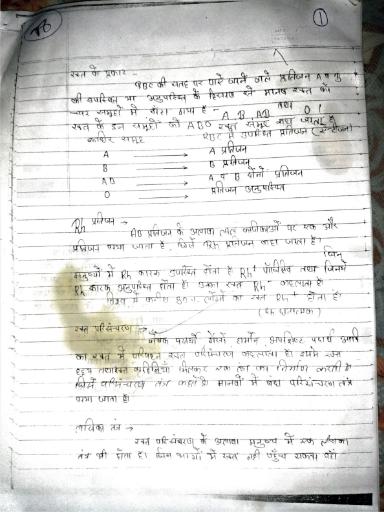 1
रक्त के प्रकार -
RBC की सतह पर पाये जाने वाले प्रतिजन A व B
की उपस्थित या अनुपस्थित के आधार पर मानव रक्त को
चार समूहों में बाँटा गया है - A, B, AB तथा O।
रक्त के इन समूहों को ABO रक्त समूह कहा जाता है
RBC में उपस्थित प्रतिजन
A → A प्रतिजन
B → B प्रतिजन
AB → A व B दोनों प्रतिजन
O → प्रतिजन अनुपस्थित
Rh प्रतिजन →
AB प्रतिजन के अलावा लाल कणिकाओं पर एक और
प्रतिजन पाया जाता है, जिसे Rh प्रतिजन कहा जाता है।
जिन
मनुष्यों में Rh कारक उपस्थित होता है Rh+ पॉजिटिव तथा जिनमें
Rh कारक अनुपस्थित होता है। उनका रक्त Rh- कहलाता है।
विश्व में 80% लोगों का रक्त Rh+ होता है।
रक्त परिसंचरण →
का रक्त में परिवहन रक्त परिसंचरण कहलाता है। इसमें रक्त
मिलकर एक तंत्र का निर्माण करती है
जिसे परिसंचरण तंत्र कहते है। मानवों में बंद परिसंचरण तंत्र
पाया जाता है।
लसिका तंत्र →
रक्त परिसंचरण के अलावा मनुष्य में एक लसिका
तंत्र भी होता है। जिन भागों में रक्त नहीं पहुँच सकता वहाँ